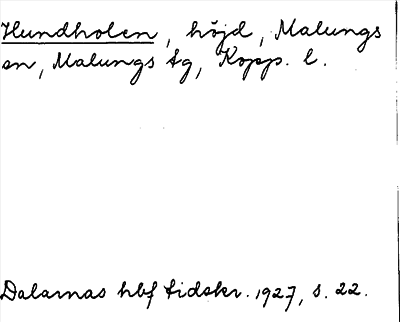 Hundholen, höjd, Malungs
sn, Malungs tg, Kopp. l.
Dalarnas hbf tidskr. 1927, s. 22.